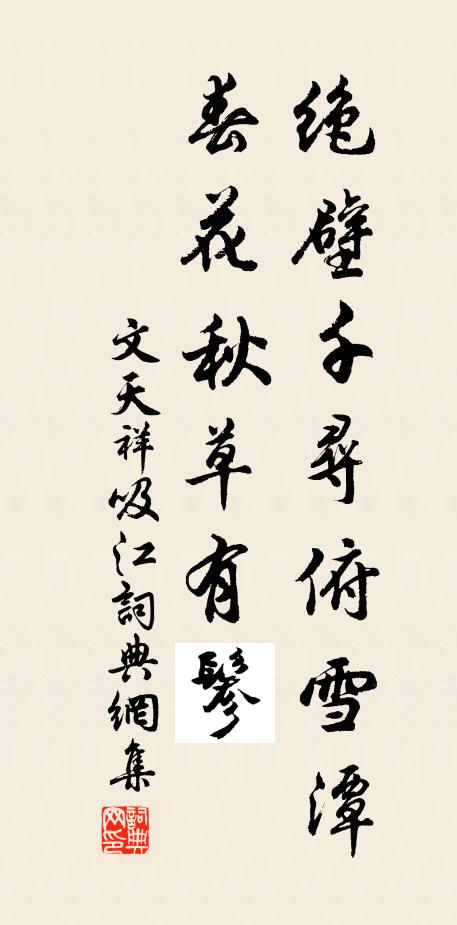 绝壁千尋俯雪潭
春花秋草有鬖
文天祥吸江詞典網集
詞典网印